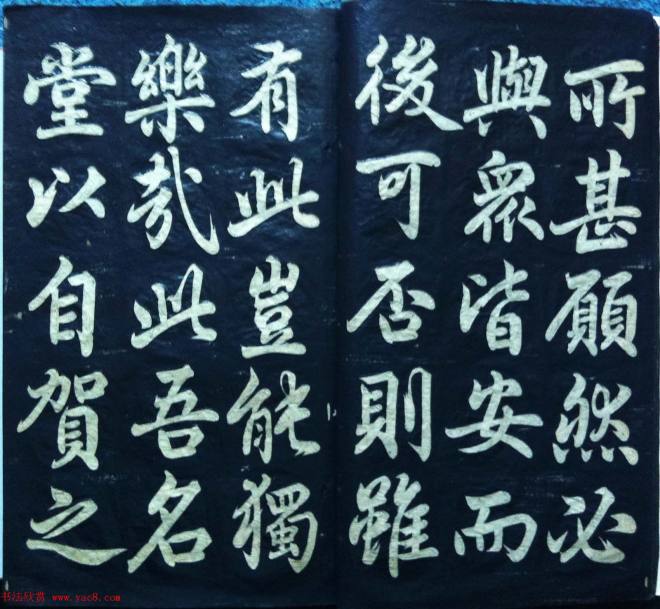 所甚願然必
與眾皆安而
後可否則雖
有此豈能獨
樂哉此吾名
堂以自賀之
书法欣赏 www.yac8.com